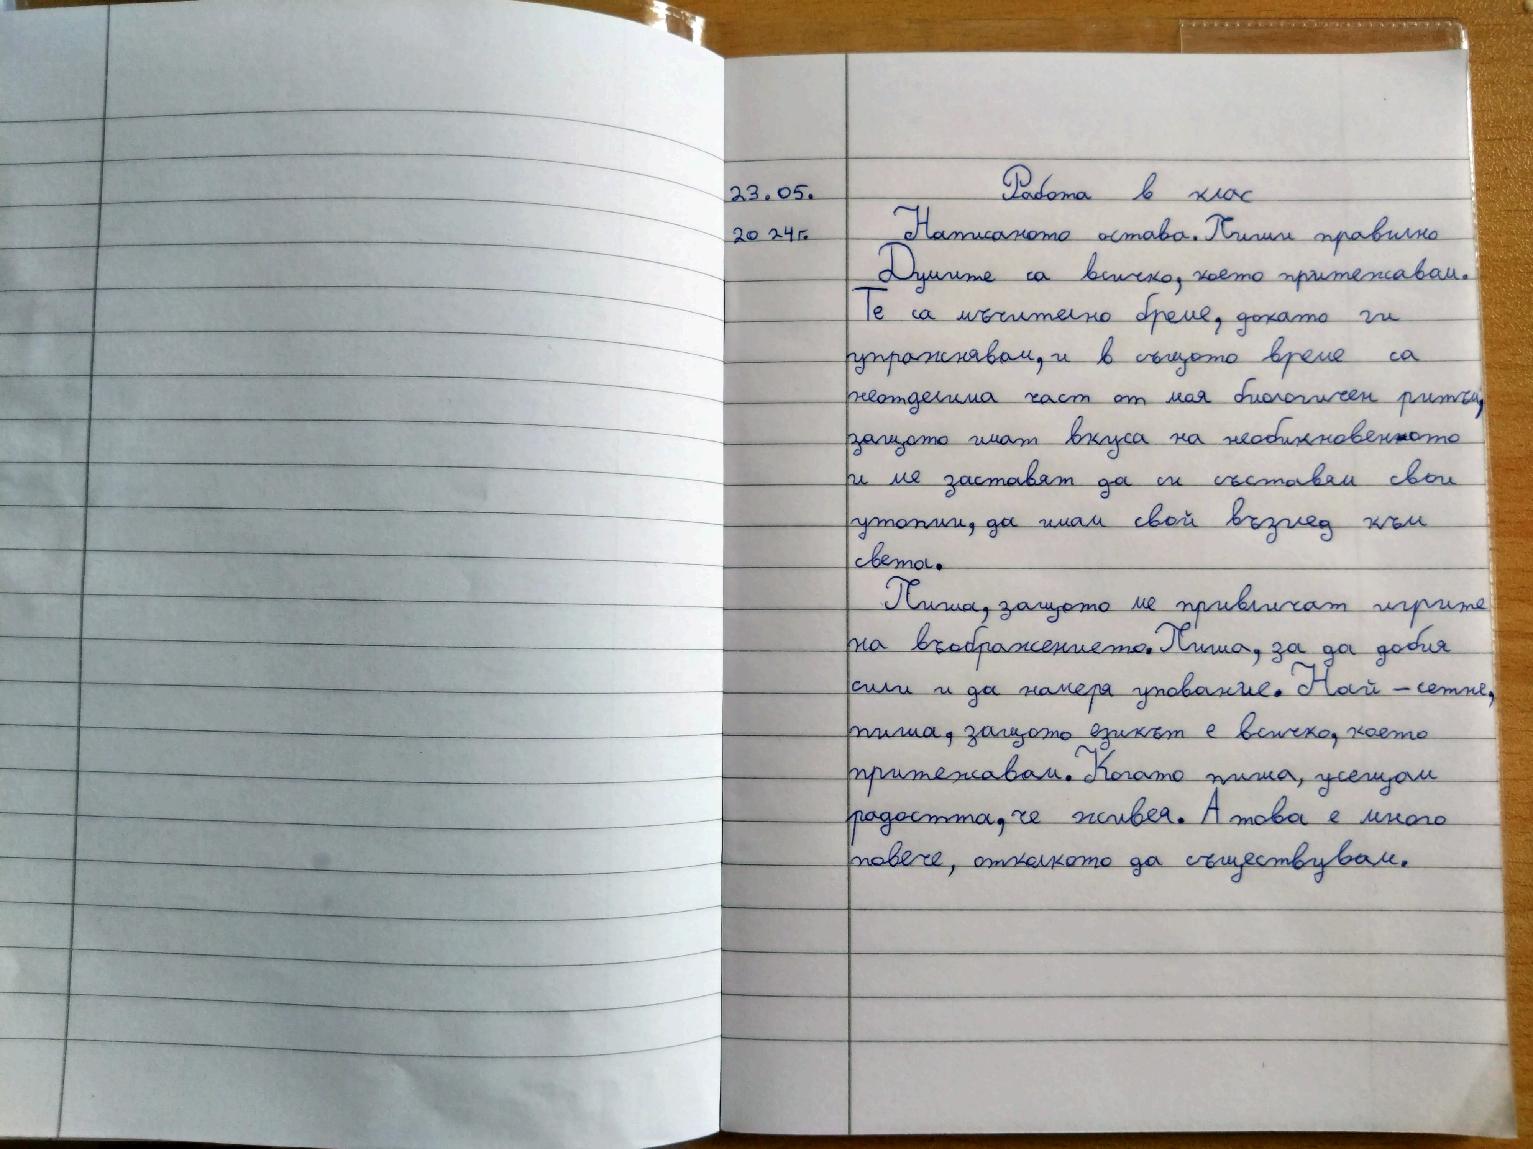 23.05. Работа в клас
2024г. Написаното остава. Пиши правилно
Думите са всичко, което притежавам.
Те са мъчително бреме, докато ги
упражнявам, и в същото време са
неотделима част от моя биологичен ритъм,
защото имат вкуса на необикновенното
и ме заставят да си съставям свои
утопии, да имам свой възглед към
света.
Пиша, защото ме привличат игрите
на въображението. Пиша, за да добия
сили и да намеря упование. Най-сетне,
пиша, защото езикът е всичко, което
притежавам. Когато пиша, усещам
радостта, че живея. А това е много
повече, отколкото да съществувам.